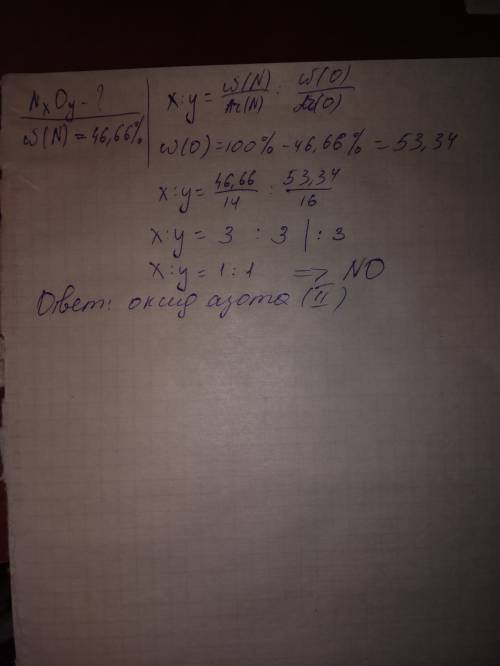 NxOy - ?
ω(N) = 46,66%
x:y = ω(N)/Ar(N) : ω(O)/Ar(O)
ω(O) = 100% - 46,66% = 53,34
x:y = 46,66/14 : 53,34/16
x:y = 3 : 3 | : 3
x:y = 1:1 => NO
Ответ: оксид азота (II)